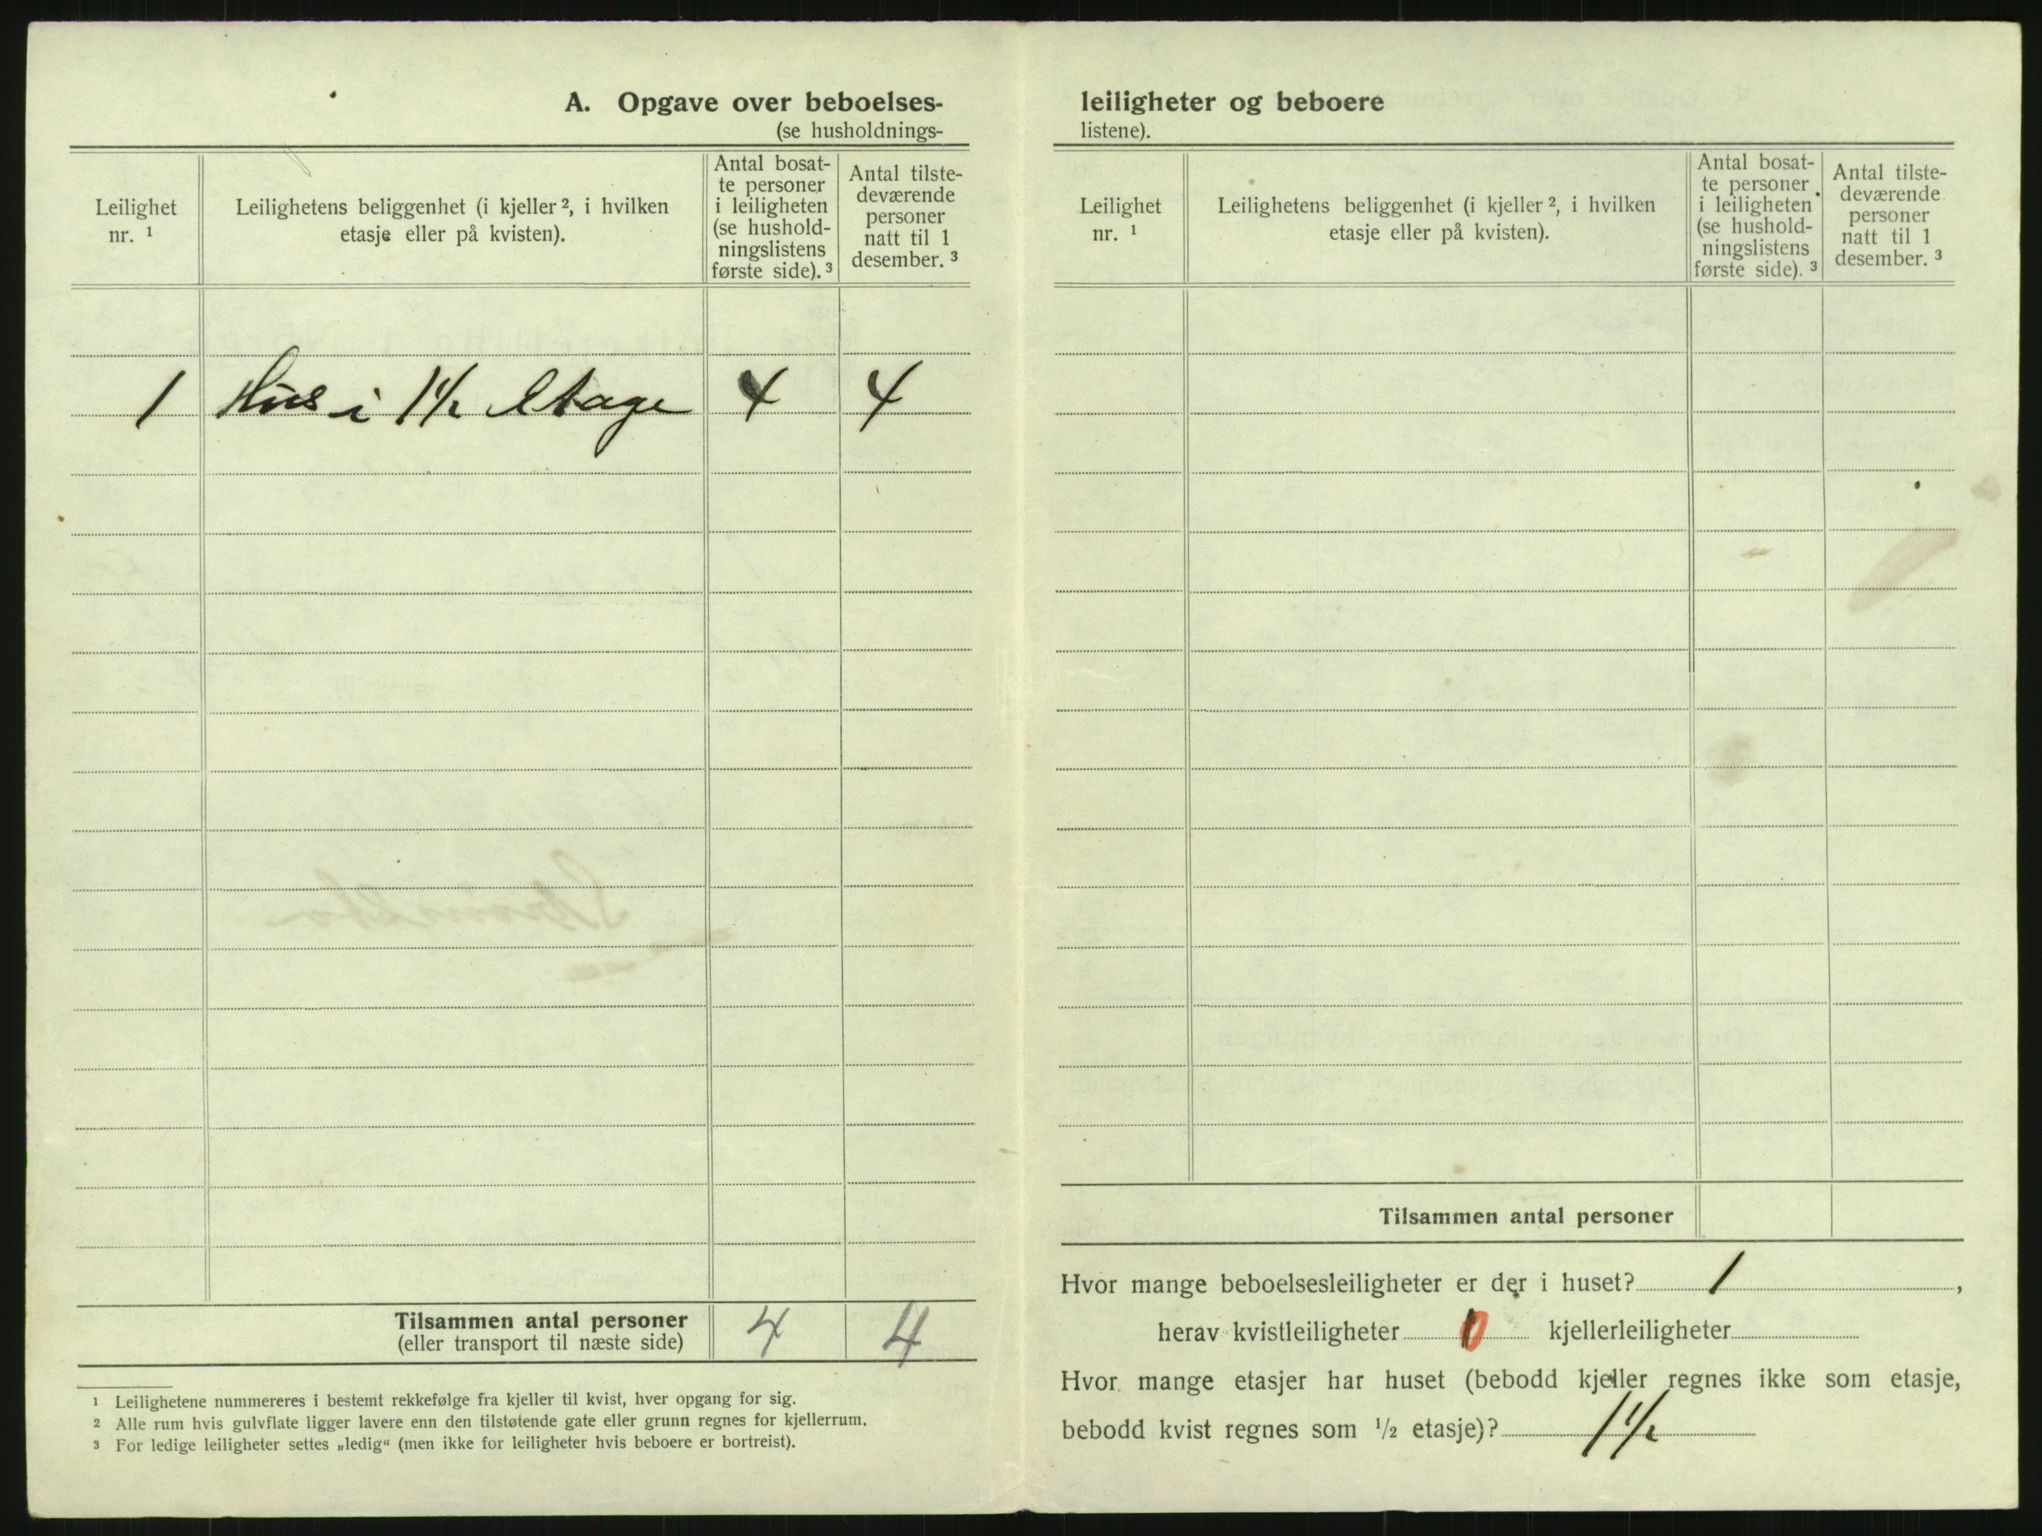 A. Opgave over beboelses-
(se husholdnings-
Leilighet
nr. ¹
Leilighetens beliggenhet (i kjeller ², i hvilken
etasje eller på kvisten).
Antal bosat-
te personer
i leiligheten
(se hushold-
ningslistens
første side). ³
Antal tilste-
deværende
personer
natt til 1
desember. ³
1 Hus i 1 1/2 Etage 4 4
Tilsammen antal personer 4 4
(eller transport til næste side)
¹ Leilighetene nummereres i bestemt rekkefølge fra kjeller til kvist, hver opgang for sig.
² Alle rum hvis gulvflate ligger lavere enn den tilstøtende gate eller grunn regnes for kjellerrum.
³ For ledige leiligheter settes „ledig“ (men ikke for leiligheter hvis beboere er bortreist).
leiligheter og beboere
listene).
Leilighet
nr. ¹
Leilighetens beliggenhet (i kjeller ², i hvilken
etasje eller på kvisten).
Antal bosat-
te personer
i leiligheten
(se hushold-
ningslistens
første side). ³
Antal tilste-
deværende
personer
natt til 1
desember. ³
Tilsammen antal personer
Hvor mange beboelsesleiligheter er der i huset? 1,
herav kvistleiligheter 0 kjellerleiligheter
Hvor mange etasjer har huset (bebodd kjeller regnes ikke som etasje,
bebodd kvist regnes som ½ etasje)? 1 1/2